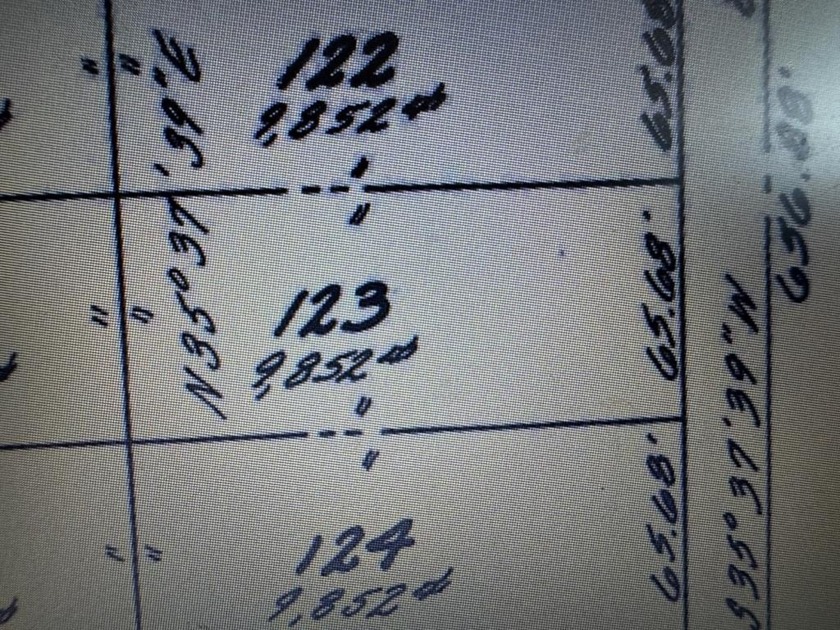 N35°37'39"E
122
9,852
65.68
656.88'
"
"
"
123
9,852
65.68'
"
"
"
124
9,852
65.68'
"
"
S35°37'39"W